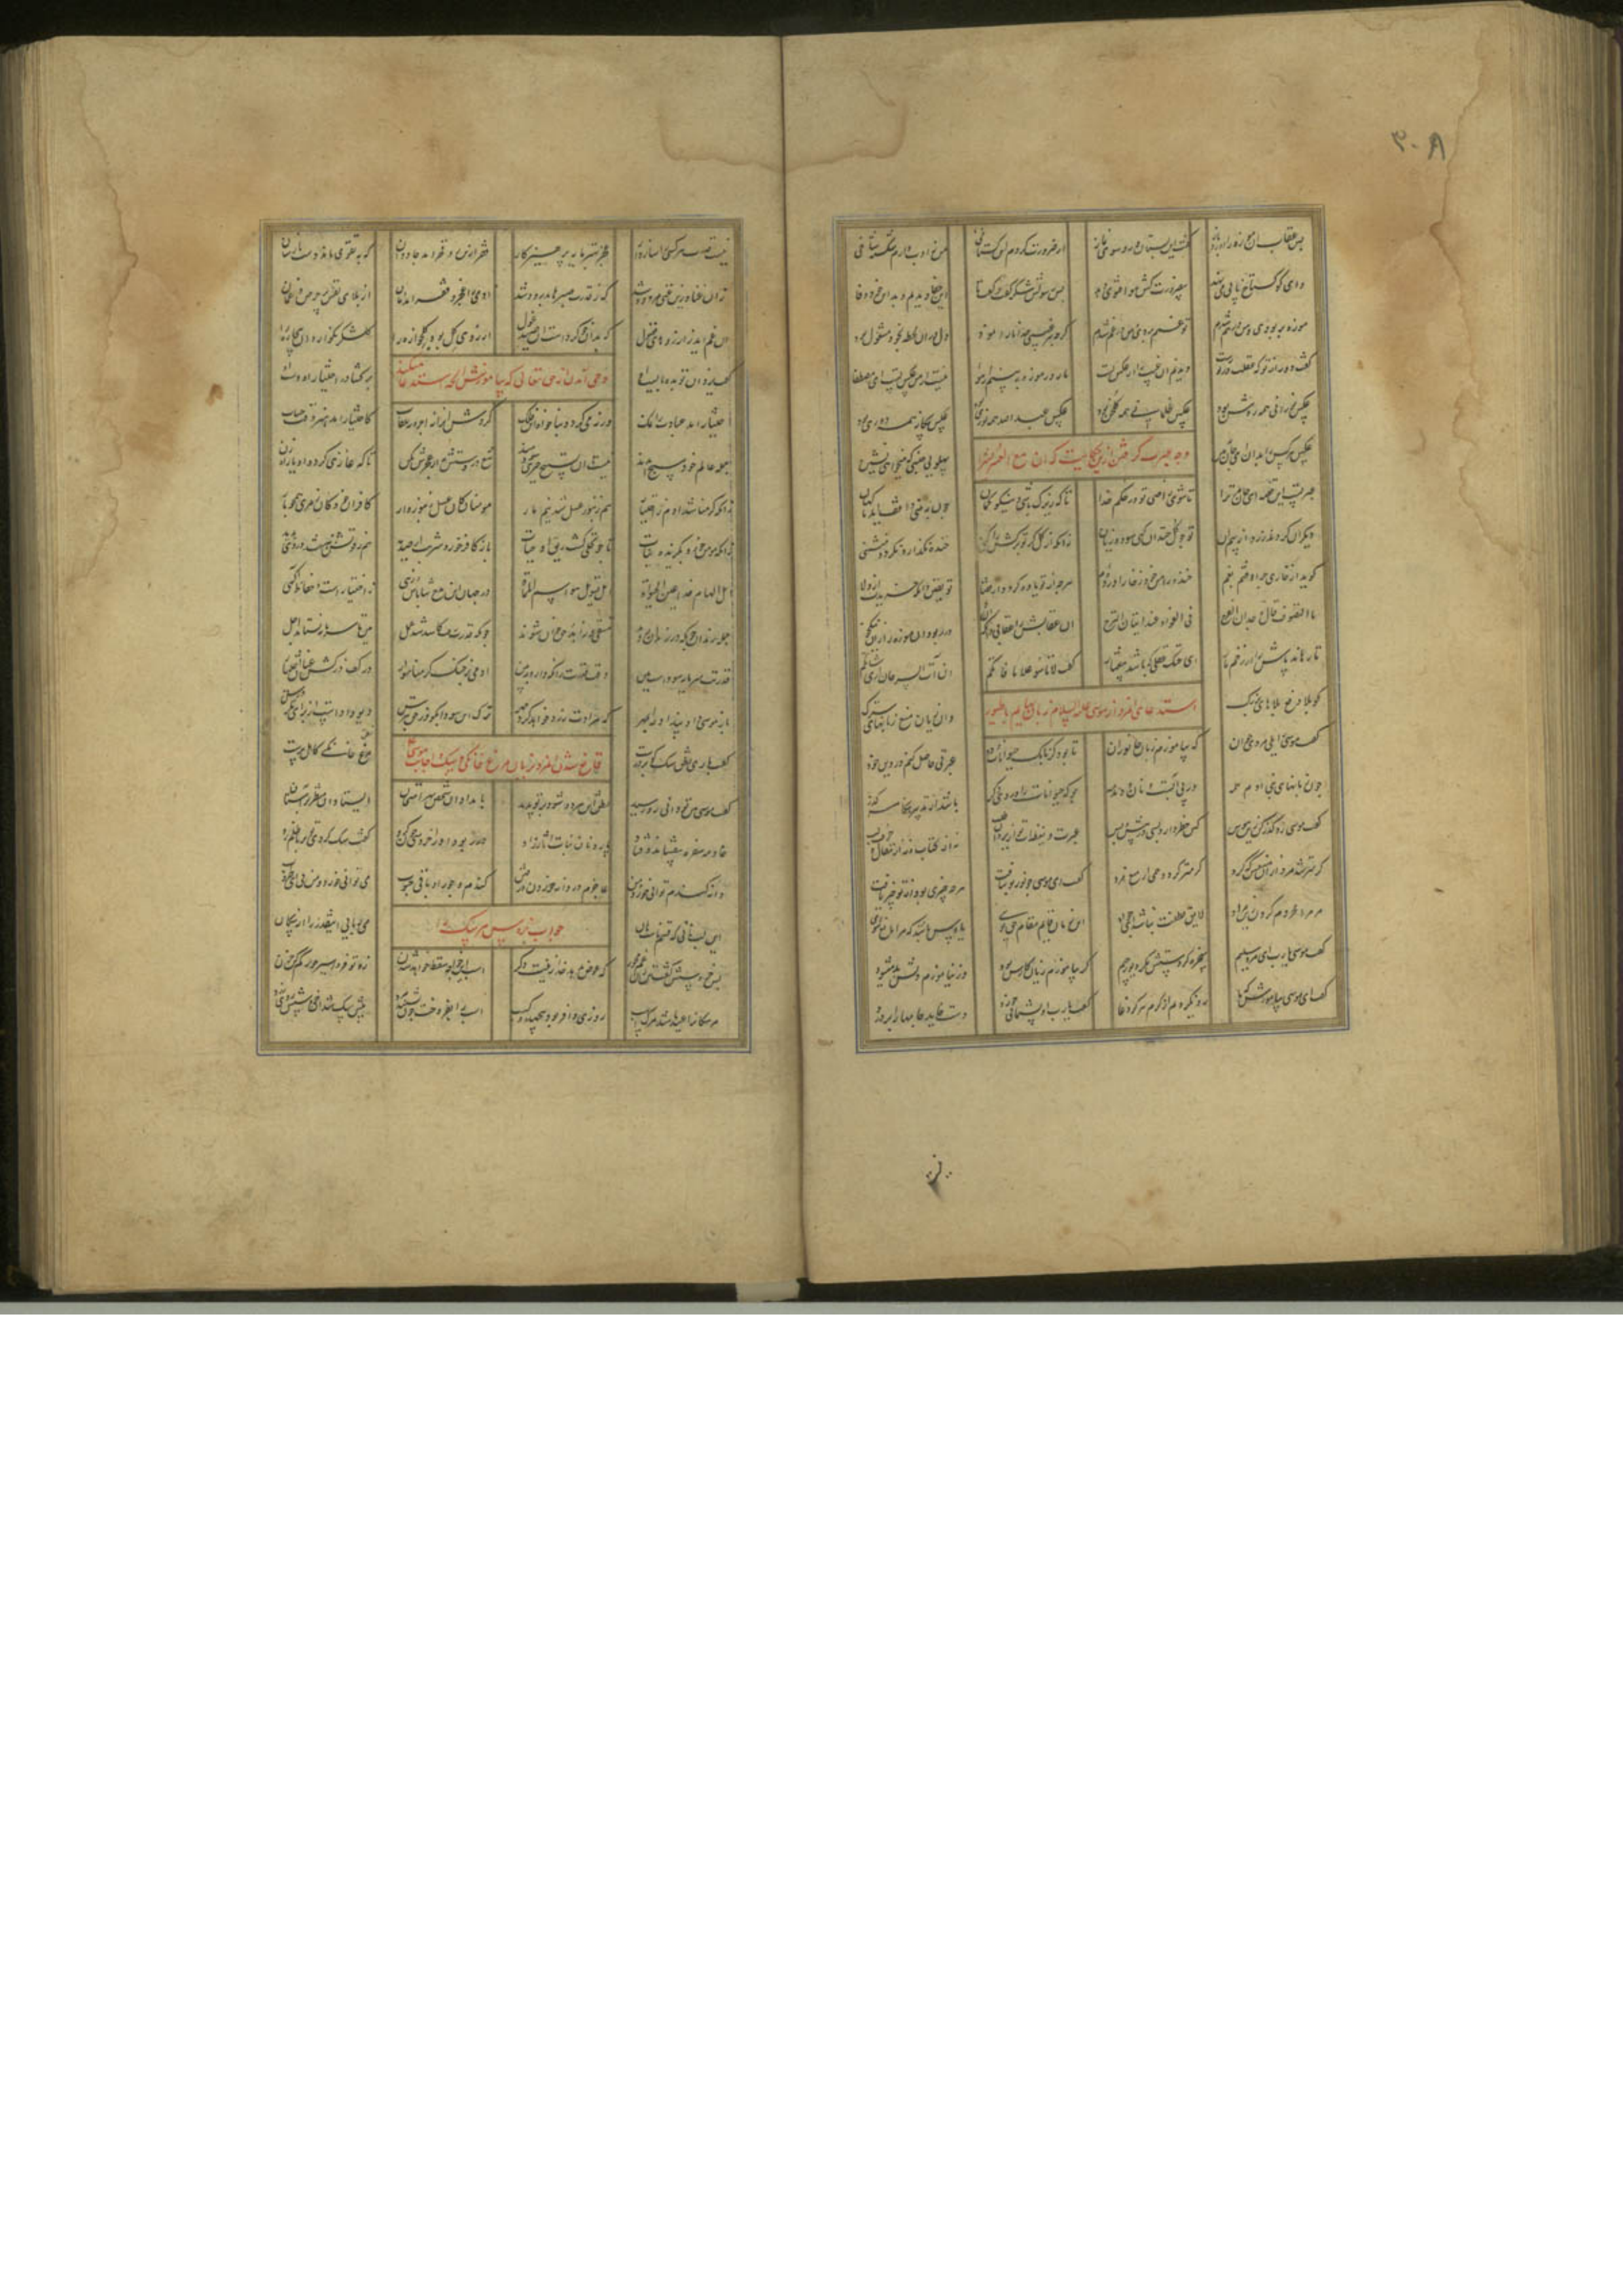 ۳۰۸
پس عقاب آن موزه را آورد باز گفت هین بستان و رو سوی نماز از ضرورت کردم این گستاخی من ز ادب دارم شکسته شاخی
وای کو گستاخ پایی می نهد بی ضرورت کش هوا فتوی دهد پس رسولش شکر کرد و گفت ما این جفا دیدیم و بد آن خود وفا
موزه بربودی و من درهم شدم تو غمم بردی و من در غم شدم گرچه هر غیبی خدا ما را نمود دل در آن لحظه بخود مشغول بود
گفت دور از تو که غفلت در تو رست دیدنم آن غیب را هم عکس تست مار در موزه ببینم بر هوا نیست از من عکس تست ای مصطفا
عکس نورانی همه روشن بود عکس ظلمانی همه گلخن بود عکس عبد الله همه نوری بود عکس بیگانه همه کوری بود
عکس هر کس را بدان ای جان ببین پهلوی جنسی که میخواهی نشین
وجه عبرت گرفتن ازین حکایت که ان مع العسر یسرا
عبرتست این قصه ای جان مر ترا تا شوی راضی تو در حکم خدا تا که زیرک باشی و نیکو گمان چون ببینی واقعه بد ناگهان
دیگران گردند زرد از بیم آن تو چو گل خندان گه سود و زیان زانکه گل گر برگ برگش می کنی خنده نگذارد نگردد منثنی
گوید از خاری چرا افتم بغم خنده را من خود ز خار آورده ام هرچه از تو یاوه گردد از قضا تو یقین دان که خریدت از بلا
ما التصوف قال وجدان الفرح فی الفواد عند اتیان الترح آن عقابش را عقابی دان که او در ربود آن موزه را زان نیک خو
تا رهاند پاش را از زخم مار ای خنک عقلی که باشد بی غبار گفت لا تاسوا علی ما فاتکم ان اتی السرحان واردی شاتکم
کان بلا دفع بلاهای بزرگ وان زیان منع زیانهای سترک
استدعای آن مرد از موسی علیه السلام زبان بهایم با طیور
گفت موسی را یکی مرد جوان که بیاموزم زبان جانوران تا بود کز بانگ حیوانات و دد عبرتی حاصل کنم در دین خود
چون زبانهای بنی آدم همه در پی آبست و نان و دمدمه بوکه حیوانات را دردی دگر باشد از تدبیر هنگام گذر
گفت موسی رو گذر کن زین هوس کین خطر دارد بسی در پیش و پس عبرت و بیداری از یزدان طلب نه از کتاب و از مقال و حرف و لب
گرمتر شد مرد زان منعش که کرد گرمتر گردد همی از منع مرد گفت ای موسی چو نور تو بتافت هرچه چیزی بود از تو چیز یافت
مر مرا محروم کردن زین مراد لایق لطفت نباشد ای جواد این زمان قایم مقام حق توی یاس باشد گر مرا مانع شوی
گفت موسی یارب این مرد سلیم سخره کردستش مگر دیو رجیم گر بیاموزم زیان کارش بود ور نیاموزم دلش بد میشود
گفت ای موسی بیاموزش که ما رد نکردیم از کرم هرگز دعا گفت یارب او پشیمانی خورد دست خاید جامها را بر درد
نیست قدرت هر کسی را سازوار عجز بهتر مایه پرهیزکار فقر ازین رو فخر آمد جاودان که بتقوی ماند دست نارسان
زان غنا و زین غنی مردود شد که ز قدرت صبرها بدرود شد آدمی را عجز و فقر آمد امان از بلای نفس پر حرص و غمان
آن غم آید ز آرزوهای فضول که بدان خو کرده است آن صید غول آرزوی گل بود گلخواره را گلشکر نگوارد آن بیچاره را
وحی آمدن از حق تعالی که بیاموزش آنچه استدعا میکند
گفت یزدان تو بده بایست او برگشا در اختیار آن دست او
اختیار آمد عبادت را نمک ورنه می گردد بناخواه این فلک گردش او را نه اجر و نه عقاب که اختیار آمد هنر وقت حساب
جمله عالم خود مسبح آمدند نیست آن تسبیح جبری مزدمند تیغ در دستش نه از عجزش بکن تا که غازی گردد او یا راه زن
زانکه کرمنا شد آدم ز اختیار نیم زنبور عسل شد نیم مار مومنان کان عسل زنبوروار کافران خود کان زهری همچو مار
زانکه مومن خورد بگزیده نبات تا چو نحلی گشت ریق او حیات باز کافر خورد شربت از صدید هم ز قوتش زهر شد در وی پدید
اهل الهام خدا عین الحیات اهل تسویل هوا سم الممات در جهان این مدح و شاباش و زهی ز اختیارست و حفاظ آگهی
جمله رندان چونکه در زندان بوند متقی و زاهد و حق خوان شوند چونکه قدرت رفت کاسد شد عمل هین که تا سرمایه نستاند اجل
قدرتت سرمایه سودست هین وقت قدرت را نگه دار و ببین آدمی بر خنگ کرمنا سوار در کف درکش عنان اختیار
باز موسی داد پند او را بمهر که مرادت زرد خواهد کرد چهر ترک این سودا بگو وز حق بترس دیو دادستت برای مکر درس
قانع شدن آن مرد بزبان مرغ خانگی و سگ و اجابت موسی
گفت باری نطق سگ کو بر درست نطق مرغ خانگی کاهل پرست
گفت موسی هین تو دانی رو رسید نطق این هر دو شود بر تو پدید بامدادان از برای امتحان ایستاد او منتظر بر آستان
خادمه سفره بیفشاند و فتاد پاره نان بیات آثار زاد در ربود او را خروسی چون گرو گفت سگ کردی تو بر ما ظلم رو
دانه گندم توانی خورد و من عاجزم در دانه خوردن در وطن گندم و جو را و باقی حبوب می توانی خورد و من نی ای طروب
این لب نانی که قسم ماست نان می ربایی این قدر را از سگان
جواب خروس مر سگ را
پس خروسش گفت تن زن غم مخور که عوض بدهد خدا زینت دگر اسب این خواجه سقط خواهد شدن روز فردا سیر خور کم کن حزن
مر سگان را عید باشد مرگ اسب روزی وافر بود بی جهد و کسب اسب را بفروخت چون بشنید مرد پیش سگ شد آن خروسش روی زرد